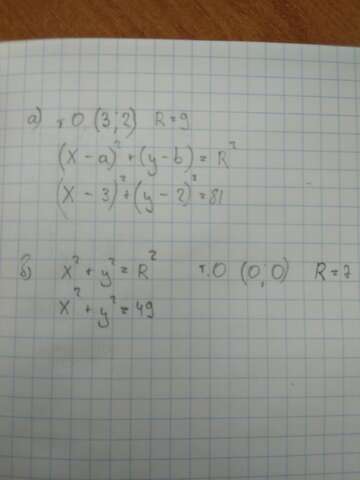 а) т.О (3;2) R=9
(x-a)²+(y-b)=R²
(x-3)²+(y-2)²=81
б) x²+y²=R² т.О (0;0) R=7
x²+y²=49